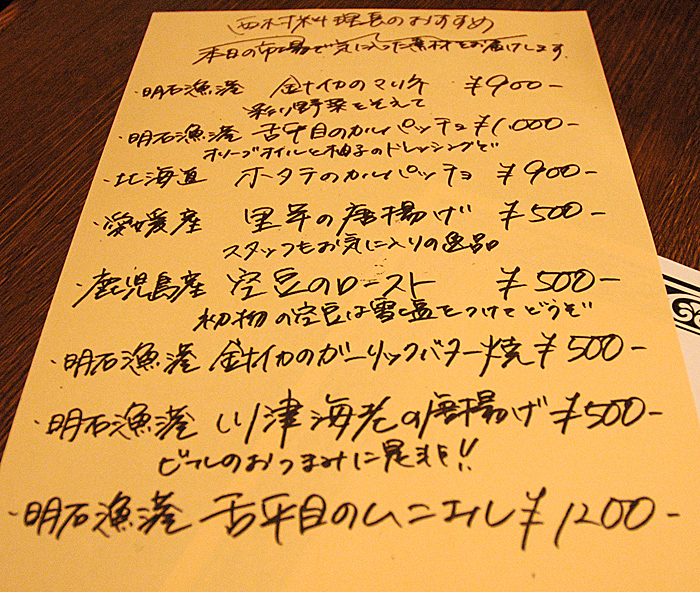 西村料理長のおすすめ
本日の市場で気に入った素材をお届けします
・明石漁港 針イカのマリネ ¥900-
彩り野菜をそえて
・明石漁港 舌平目のカルパッチョ ¥1,000-
オリーブオイルと柚子のドレッシングで
・北海道 ホタテのカルパッチョ ¥900-
・愛媛産 里芋の唐揚げ ¥500-
スタッフもお気に入りの逸品
・鹿児島産 空豆のロースト ¥500-
初物の空豆は雪塩をつけてどうぞ
・明石漁港 針イカのガーリックバター焼 ¥500-
・明石漁港 川津海老の唐揚げ ¥500-
ビールのおつまみに是非!!
・明石漁港 舌平目のムニエル ¥1200-